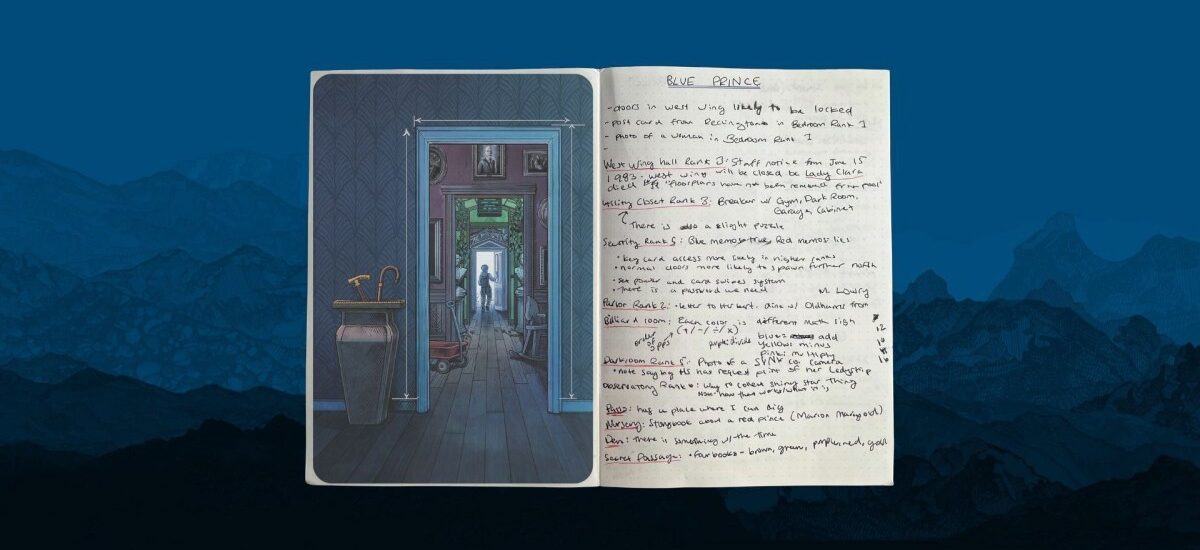 BLUE PRINCE
- doors in west wing likely to be locked
- post card from in Bedroom Rank 1
- photo of a woman in Bedroom Rank 1
-
West Wing hall Rank 3: Staff notice from June 15
1983. west wing will be closed be Lady Clara
died "floorplans have not been removed from pool"
Utility Closet Rank 8: Breaker w/ Gym, Dark Room,
Garage, Cabinet
There is also a slight puzzle
Security Rank 5: Blue memos true, Red memos lies
• key card access more likely in higher ranks
• normal doors more likely to spawn further north
• set power and card swipes system
• There is a password we need
M. Lowry
Parlor Rank 2: • letter to Herbert. dine w/ from
Billiard room: Each color is different math sign
order of ops (+/-/÷/x)
purple: divide
blue: add
yellow: minus
pink: multiply
12
Darkroom Rank 5: Photo of a co. Camera
• note saying HS has request print of her Ladyship
Observatory Rank : way to collect shiny star Thing
Note: how that works/what it is
Patio: has a place where I can dig
Nursery: Storybook about a red prince (Marion Marigold)
Den: There is something w/ the time
Secret Passage: • four books - brown, green, purple, red, gold